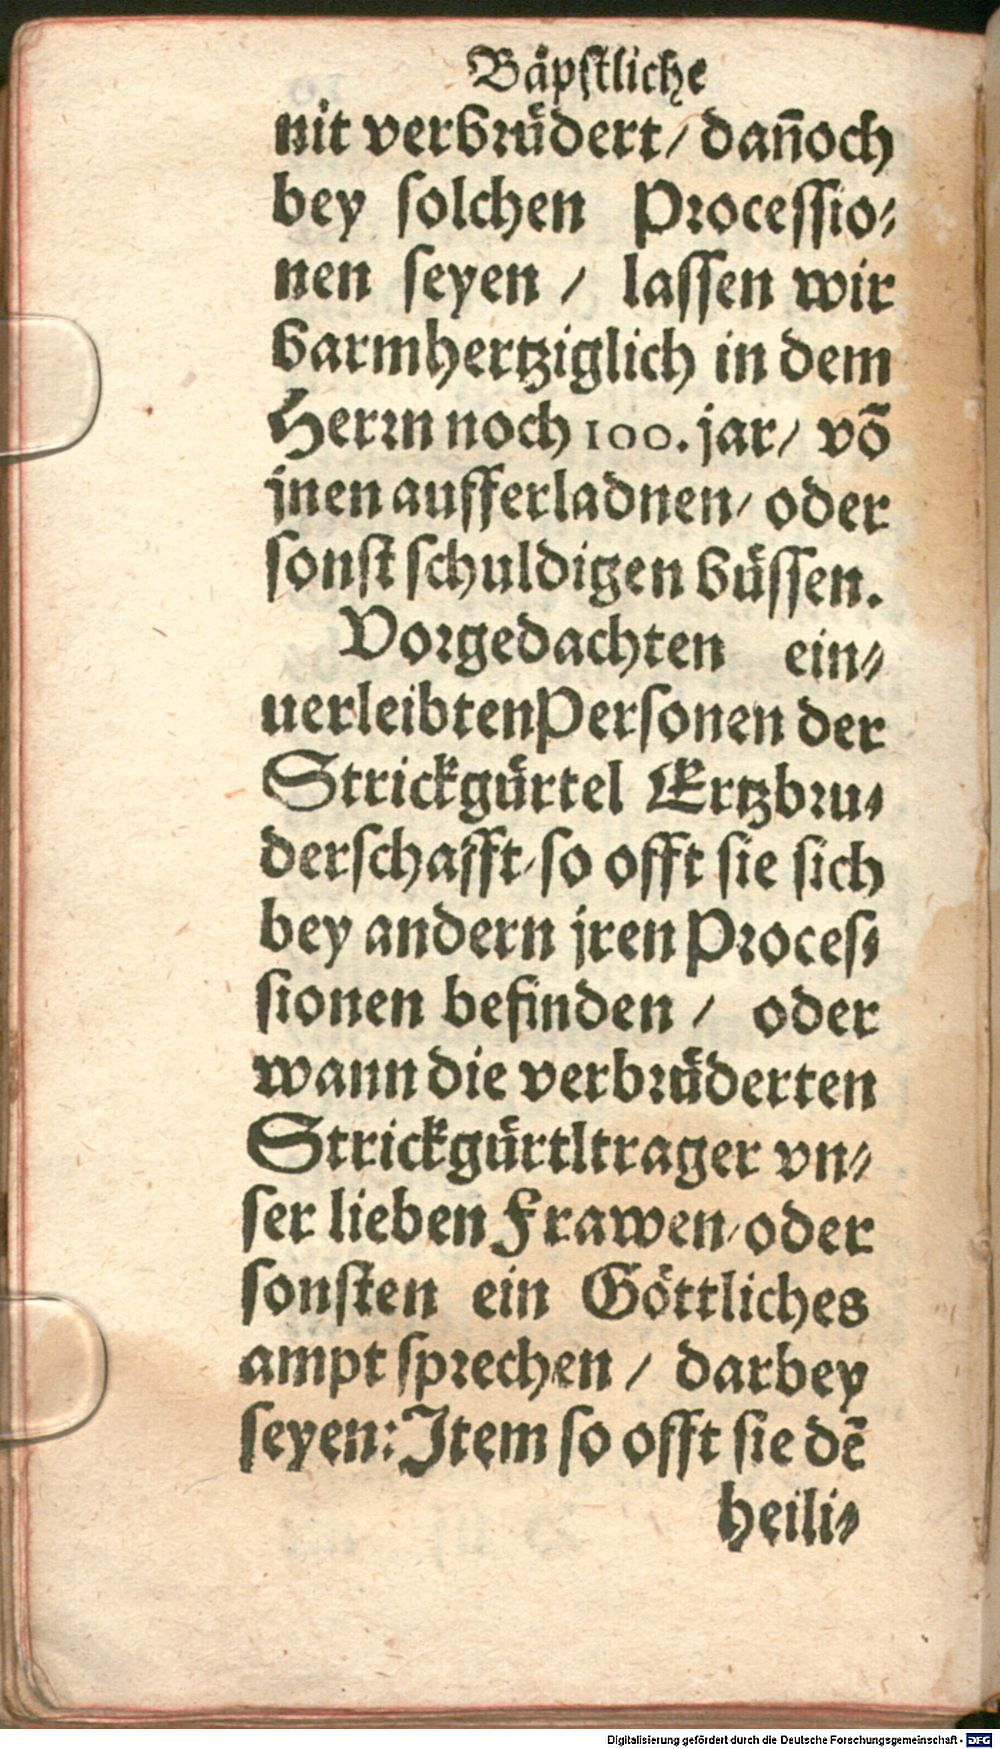 Bäpſtliche
nit verbrüdert/ dan̄och
bey ſolchen Proceſſio⸗
nen ſeyen / laſſen wir
barmhertziglich in dem
Herrn noch 100. jar/ võ
jnen aufferladnen/ oder
ſonſt ſchuldigen büſſen.
Vorgedachten ein⸗
uerleibten Perſonen der
Strickgürtel Ertzbru⸗
derſchafft/ ſo offt ſie ſich
bey andern jren Proceſ⸗
ſionen befinden / oder
wann die verbrüderten
Strickgürtltrager vn⸗
ſer lieben Frawen/ oder
ſonſten ein Göttliches
ampt ſprechen / darbey
ſeyen: Item ſo offt ſie dē
heili⸗
Digitalisierung gefördert durch die Deutsche Forschungsgemeinschaft - DFG